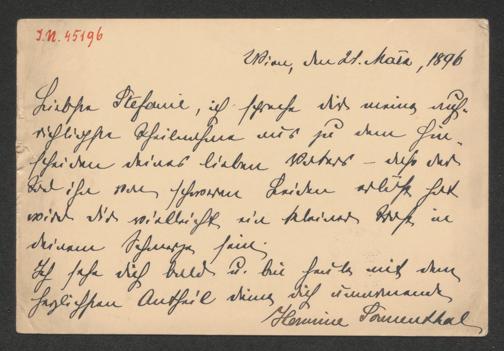 I.N. 45196
Wien, den 21. März, 1896
Liebste Stefanie, ich spreche dir meine auf-
richtigste Theilnahme aus zu dem Hin-
scheiden deines lieben Vaters – dass der
Tod ihn von schweren Leiden erlöst hat
wird dir vielleicht ein kleiner Trost in
deinem Schmerze sein.
Ich sehe dich bald u. bin heute mit dem
herzlichsten Antheil deine dich umarmende
Hermine Sonnenthal